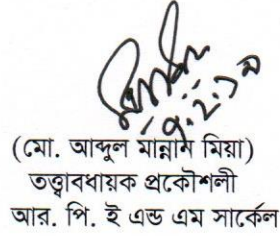 (মো. আব্দুল মান্নান মিয়া)
তত্ত্বাবধায়ক প্রকৌশলী
আর. পি. ই এন্ড এম সার্কেল